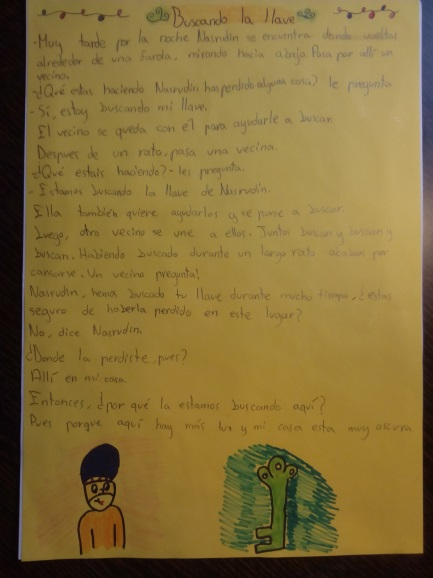 Buscando la llave
-Muy tarde por la noche Nasrudín se encuentra dando vueltas
alrededor de una farola, mirando hacia abajo. Pasa por allí un
vecino.
-¿Qué estás haciendo Nasrudín has perdido alguna cosa? le pregunta
- Sí, estoy buscando mi llave.
El vecino se queda con él para ayudarle a buscar.
Despues de un rato, pasa una vecina.
-¿Qué estáis haciendo?- les pregunta.
- Estamos buscando la llave de Nasrudín.
Ella también quiere ayudarlos y se pone a buscar.
Luego, otro vecino se une a ellos. Juntos buscan y buscan y
buscan. Habiendo buscado durante un largo rato acaban por
cansarse. Un vecino pregunta:
Nasrudín, hemos buscado tu llave durante mucho tiempo, ¿estás
seguro de haberla perdido en este lugar?
No, dice Nasrudín.
¿Donde la perdiste, pues?
Allí en mi casa.
Entonces, ¿por qué la estamos buscando aquí?
Pues porque aquí hay más luz y mi casa esta muy oscura